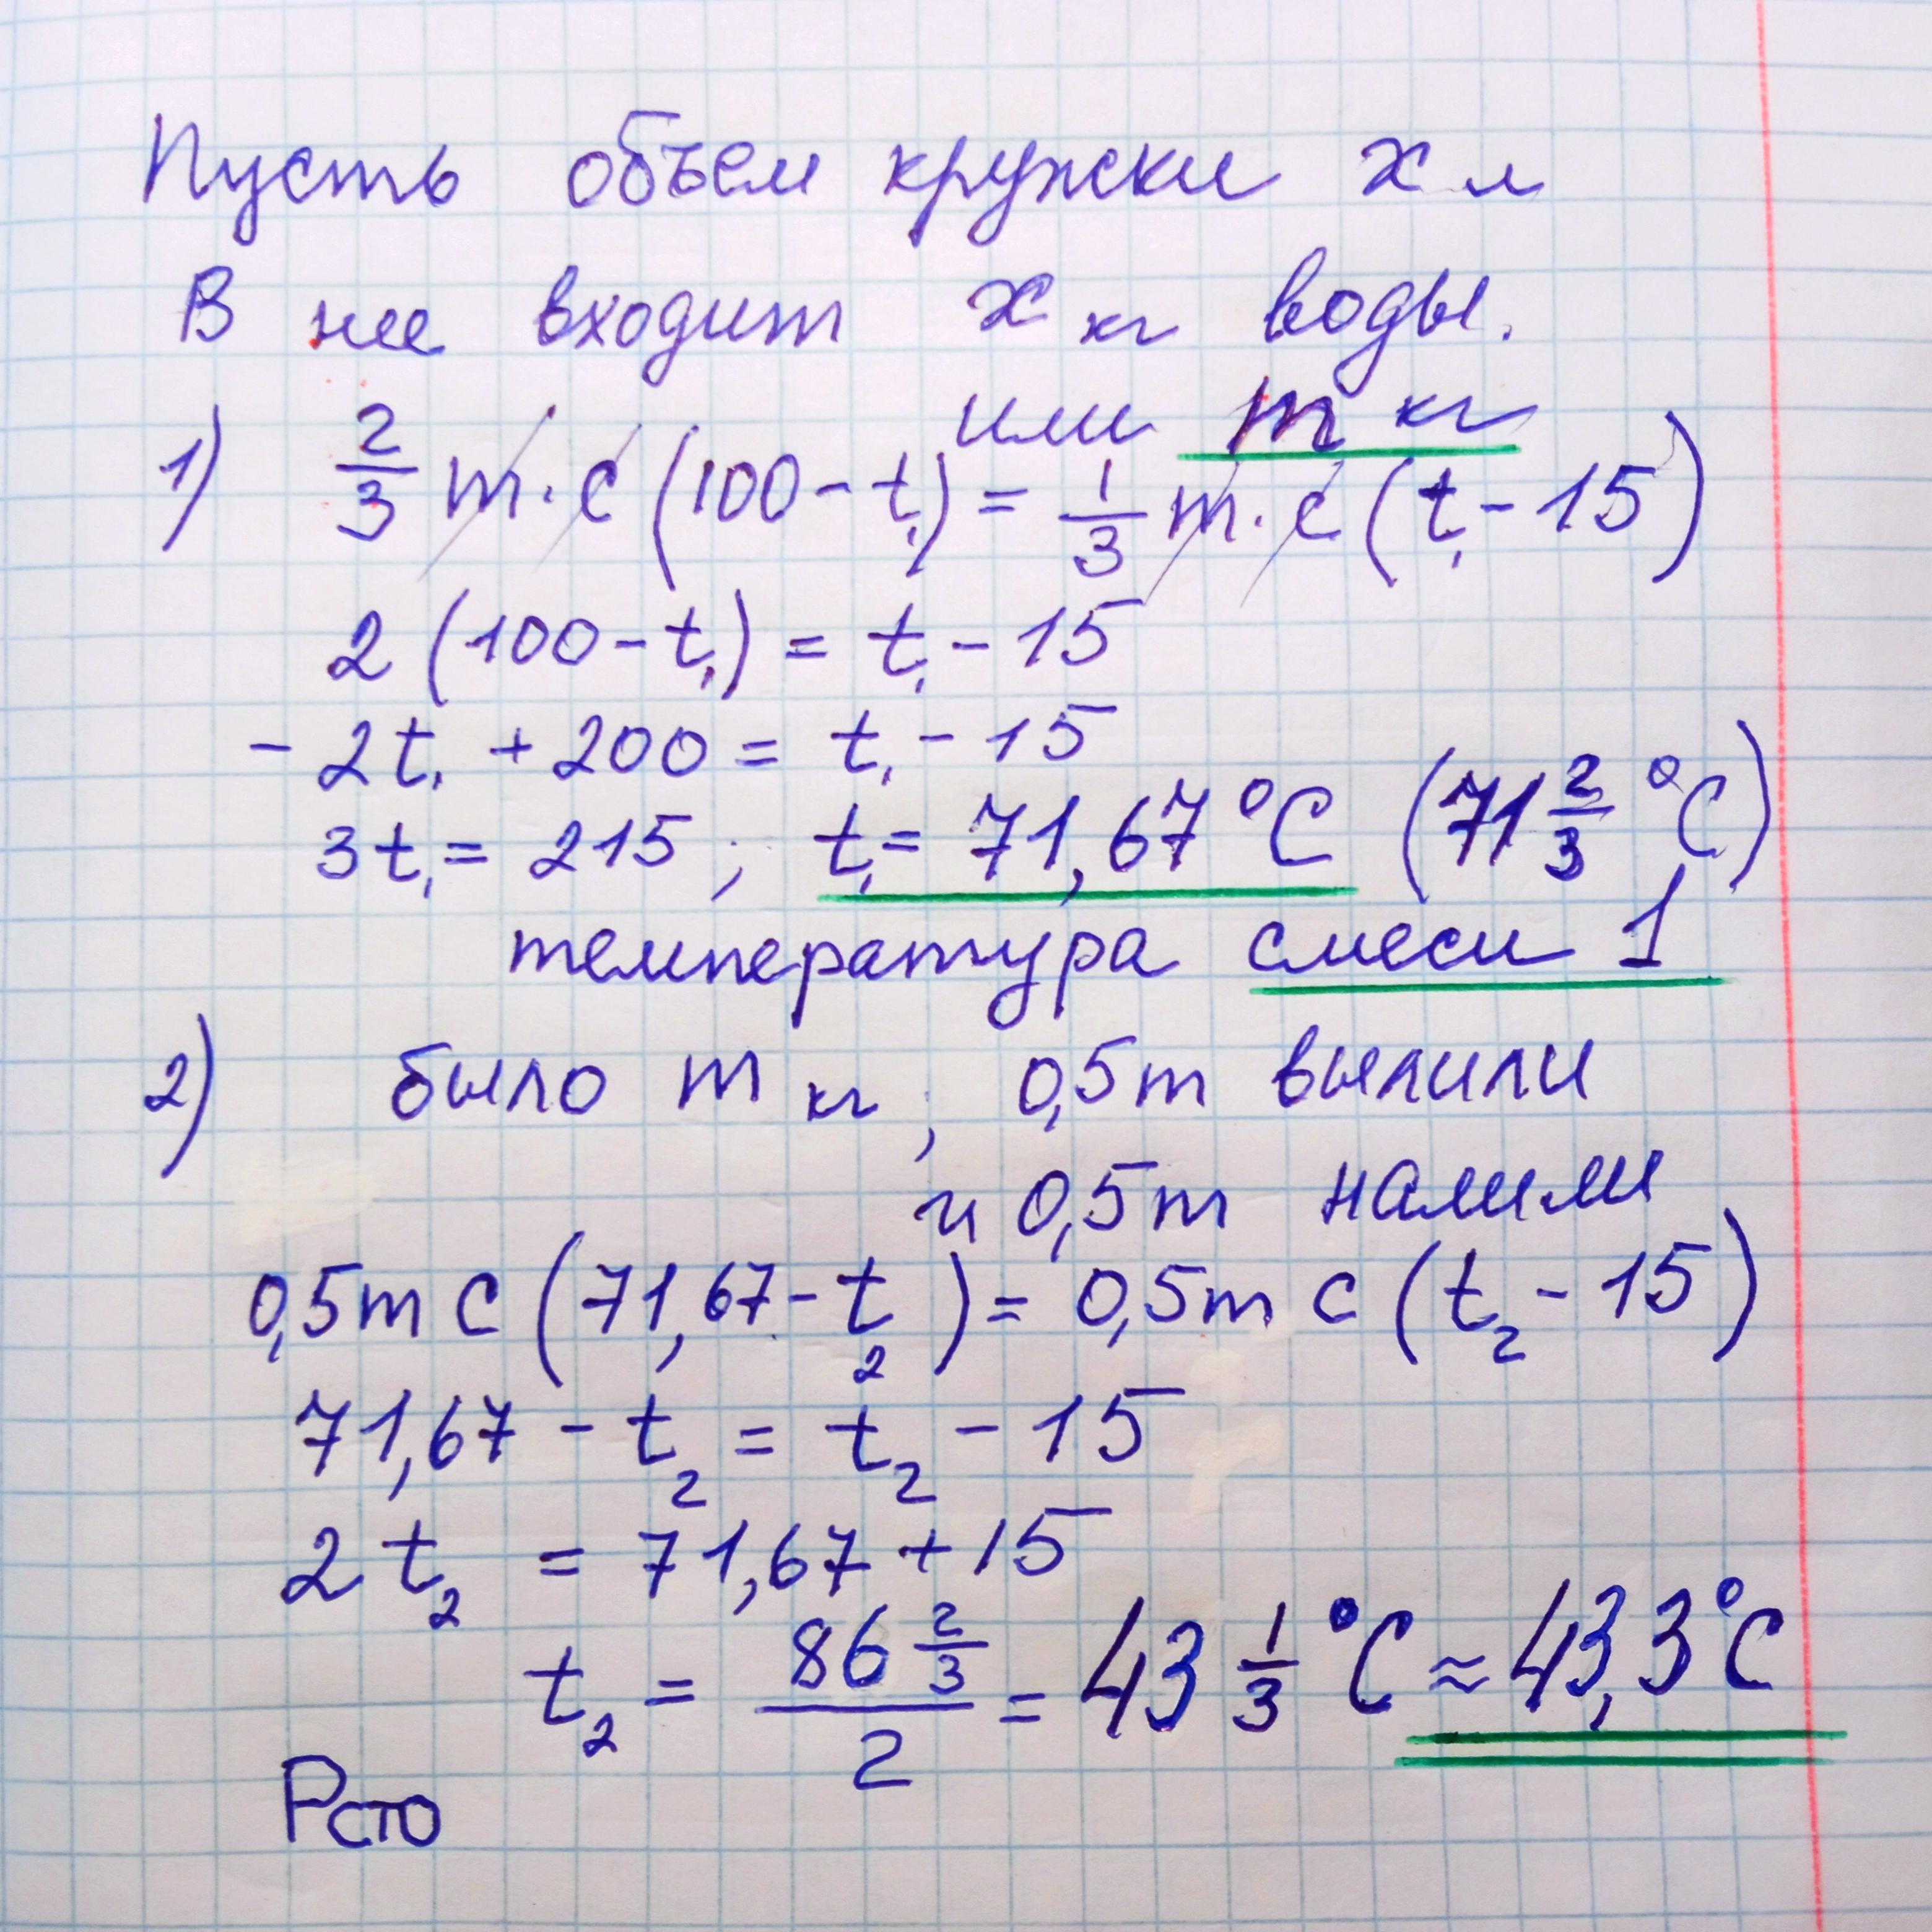 Пусть объем кружки x л
В нее входит x кг воды.
или m кг
1) 2/3 m·c (100 - t₁) = 1/3 m·c (t₁ - 15)
2 (100 - t₁) = t₁ - 15
- 2t₁ + 200 = t₁ - 15
3t₁ = 215 ; t₁ = 71,67 °C (71 2/3 °C)
температура смеси 1
2) было m кг, 0,5m вылили
и 0,5m налили
0,5m c (71,67 - t₂) = 0,5m c (t₂ - 15)
71,67 - t₂ = t₂ - 15
2 t₂ = 71,67 + 15
t₂ = 86 2/3 / 2 = 43 1/3 °C ≈ 43,3 °C
Рсто